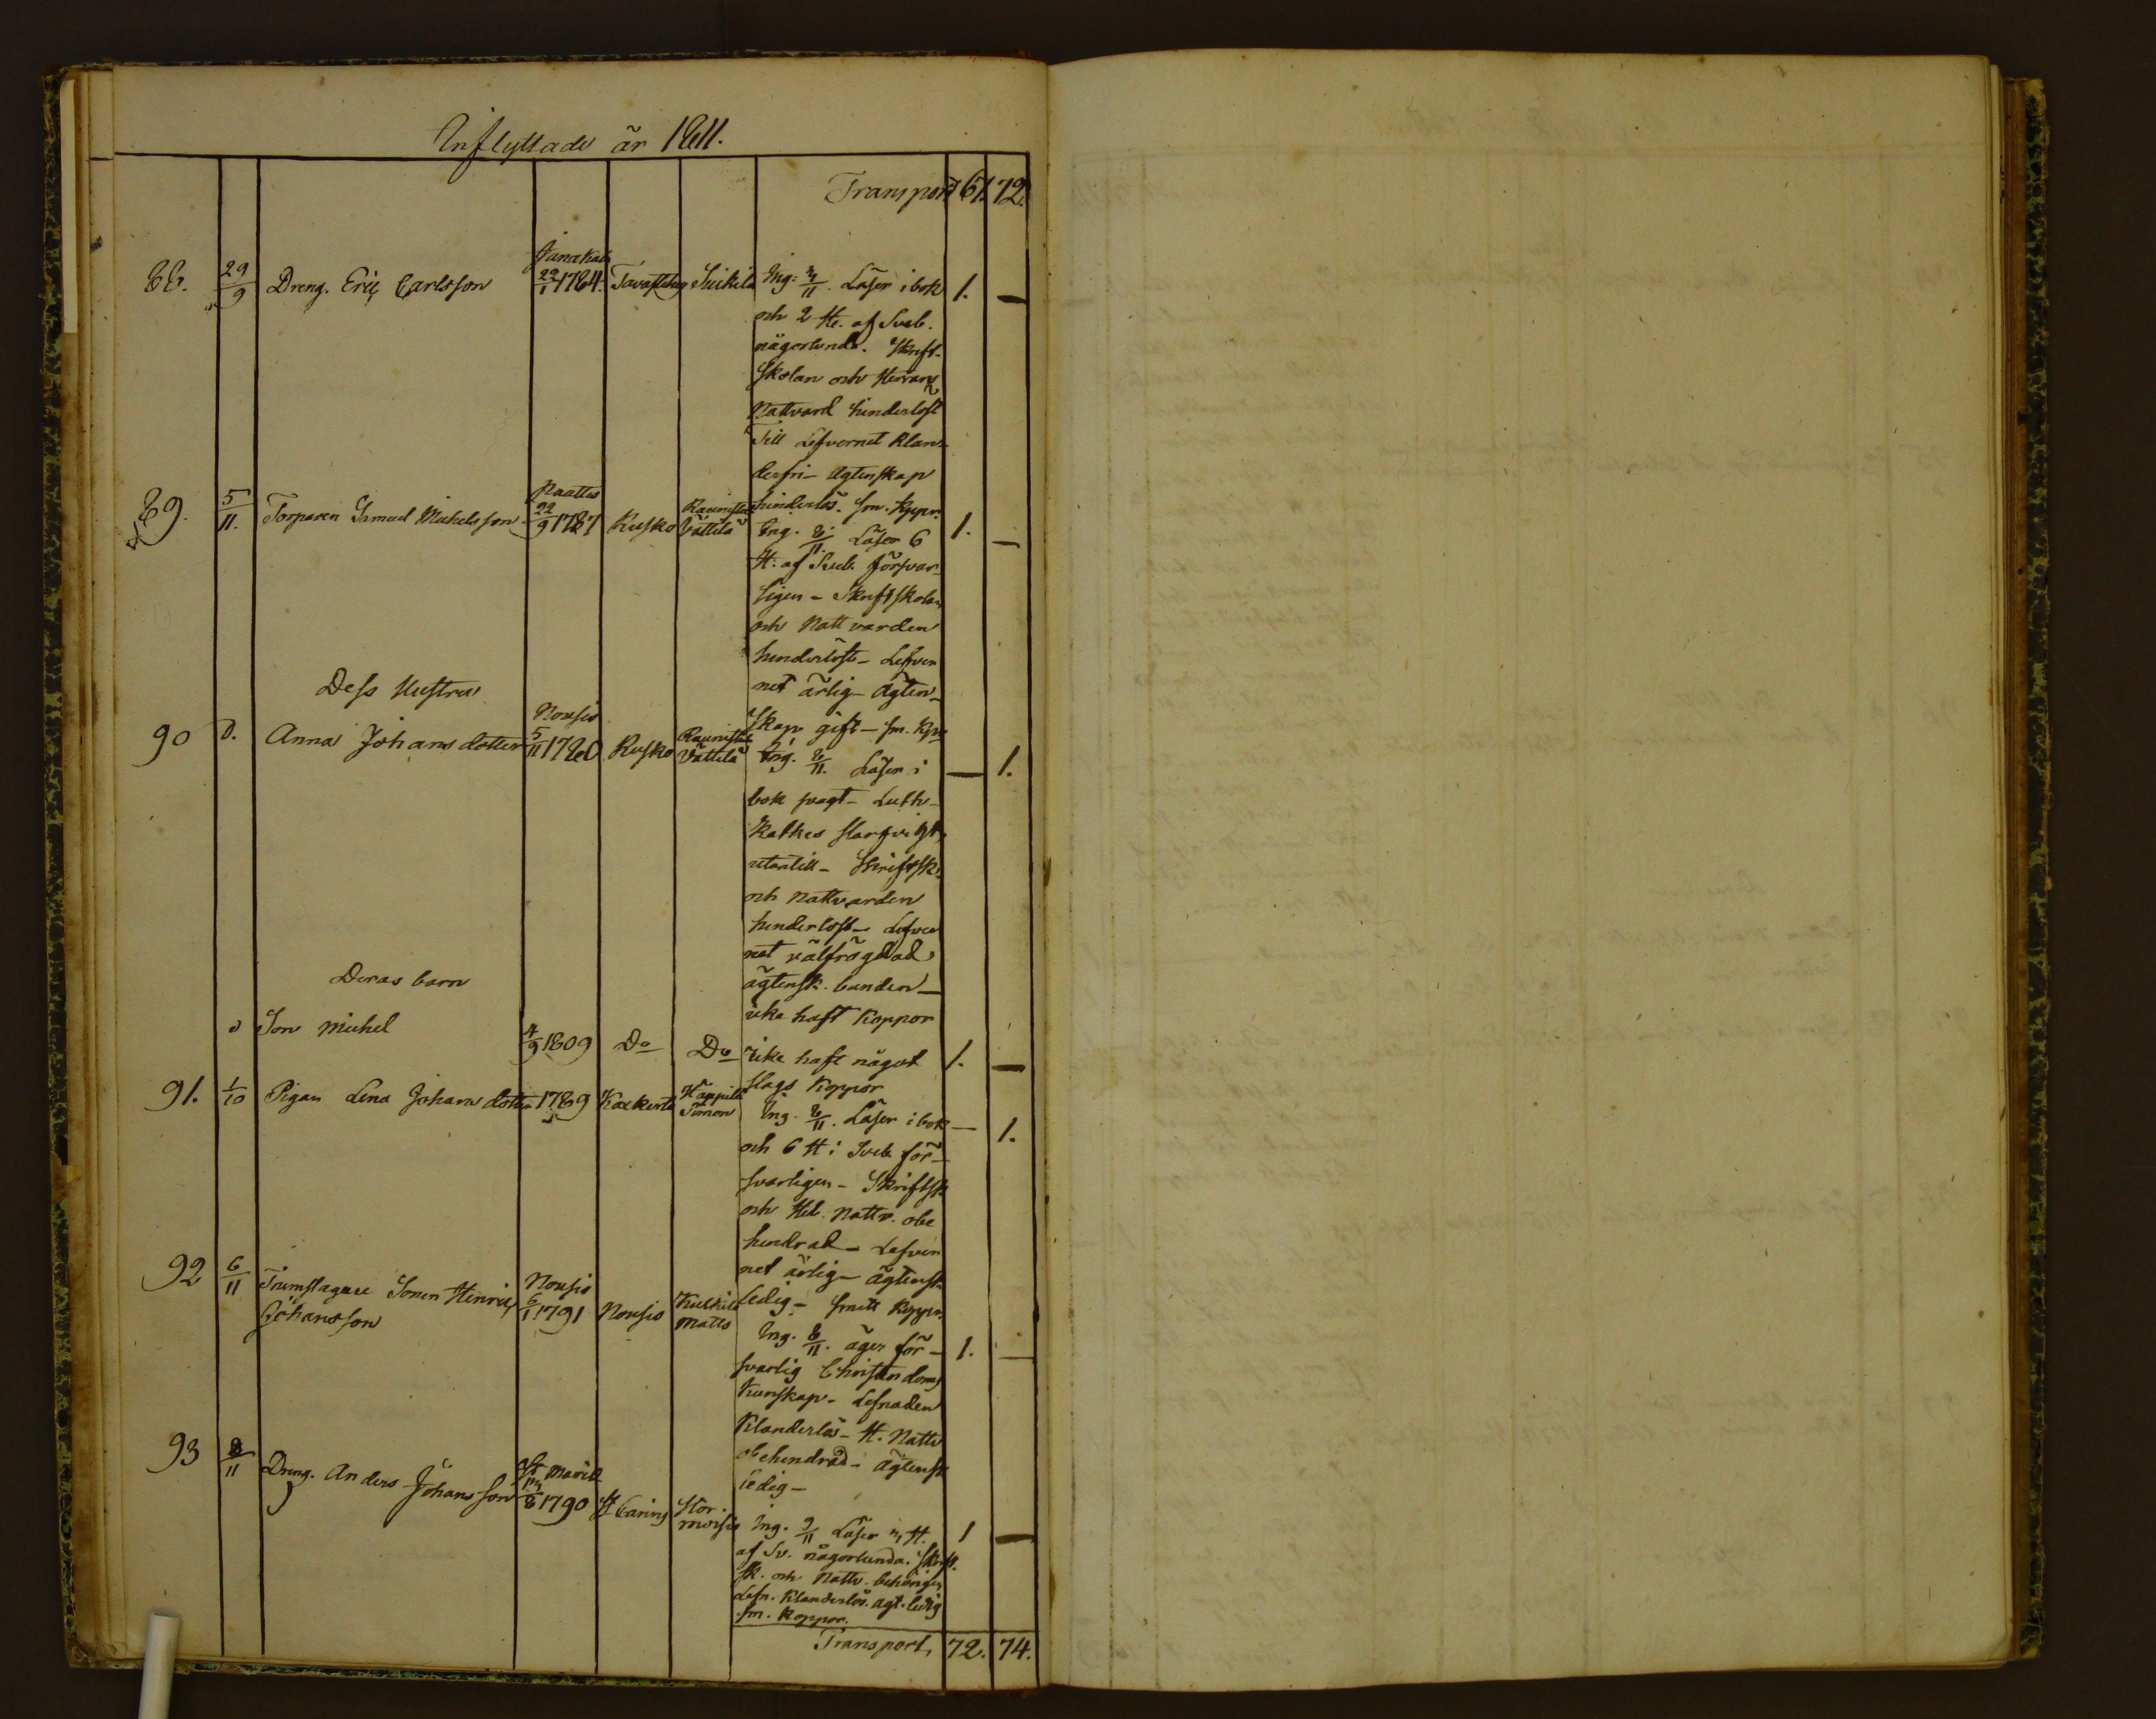 Inflyttade år 1811.
Transport 67. 72.
88. 29/9 Dreng. Eric Carlsson Janakala 22/1 1784. Tavastehus Ing: 7/11. Läser i bok 1. —
och 2 H. af Sveb.
någorlunda. Skrift-
skolan och Herrans
Nattvard hinderlöst
Till Lefvernet klan-
derfri - Ägtenskap
hinderlös. sm. kppr.
89. 5/11. Torparen Samuel Michelsson Naattes 22/9 1787 Rusko Raunistula Vättilä Ing. 8/11. Läser 6 1. —
H. af Sveb. försvar-
ligen - Skriftskolan
och Nattvarden
hinderlöst - Lefver
net ärlig - ägten-
skap gift - sm. kpr
Dess Hustru
90 d. Anna Johans dotter Nousis 5/11 1780 Rusko Raunistula Vättilä Ing. 8/11. Läser i — 1.
bok svagt - Luth.
kathes slarfvigt
utantill - Skriftsk.
och Nattvarden
hinderlöst - Lefver
net välfrägdad
ägtensk. bunden -
icke haft koppor
Deras barn
d Son Michel 4/9 1809 Do Do icke haft något 1. —
slags koppor
91. 1/10 Pigan Lena Johans dotter 1789 Koskerta Häppilä Simon Ing. 8/11. Läser i bok — 1.
och 6 H i Sveb. för-
svarligen - Skriftsk
och Hel. Nattv. obe
hindrad - Lefver
net ärlig - ägtensk
ledig - smitt kpper.
92 6/11 Trumslagare Sonen Hinric Johansson Nousis 6/1 1791 Nousis Kulkila Matts Ing. 8/11. äger för- 1. —
svarlig Christendoms
kunskap - Lefnaden
klanderlös - H. Nattv
obehindrad - ägtensk
ledig -
93 8/11 Dreng. Anders Johansson St Marie 1790 St Carins Stor Ing. 9/11 Läser H. 1 —
af Sv. någorlunda. Skrift.
sk. och Nattv. behörigen
Lefn. klanderlös. ägt. ledig
sm. koppor.
Transport, 72. 74.